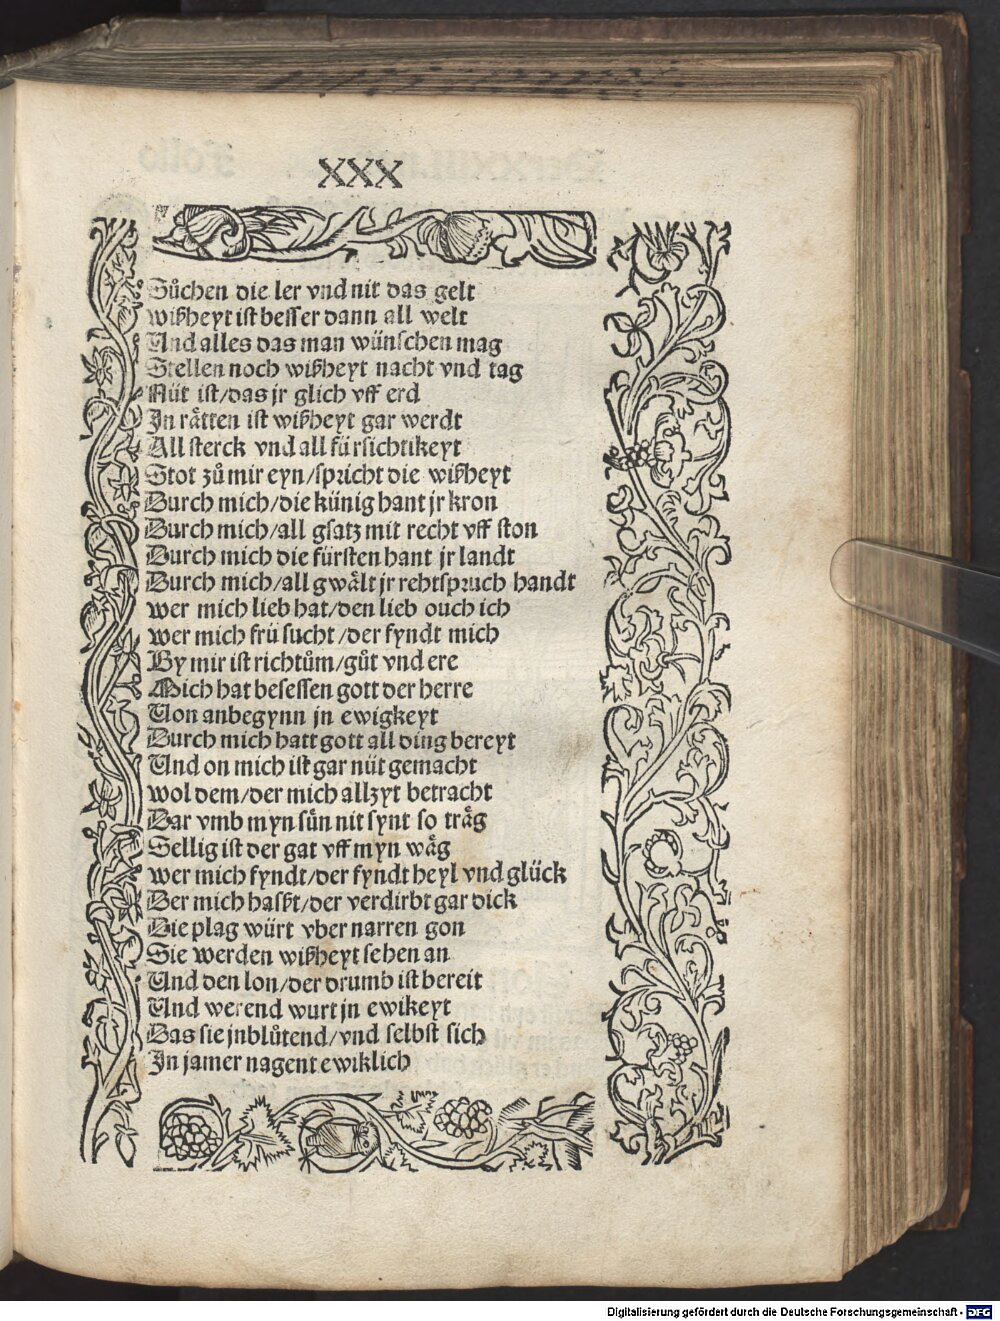 XXX
Suͦchen die ler vnd nit das gelt
wißheyt ist besser dann all welt
Und alles das man wünschen mag
Stellen noch wißheyt nacht vnd tag
Nüt ist/das jr glich vff erd
In raͤtten ist wißheyt gar werdt
All sterck vnd all fürsichtikeyt
Stot zuͦ mir eyn/spricht die wißheyt
Durch mich/die künig hant jr kron
Durch mich/all gsatz mit recht vff ston
Durch mich die fürsten hant jr landt
Durch mich/all gwaͤlt jr rehtspruch handt
wer mich lieb hat/den lieb ouch ich
wer mich frü sucht/der fyndt mich
By mir ist richtuͦm/guͦt vnd ere
Mich hat besessen gott der herre
Von anbegynn jn ewigkeyt
Durch mich hatt gott all ding bereyt
Und on mich ist gar nüt gemacht
wol dem/der mich allzyt betracht
Dar vmb myn sün nit synt so traͤg
Sellig ist der gat vff myn waͤg
wer mich fyndt/der fyndt heyl vnd glück
Der mich haßt/der verdirbt gar dick
Die plag würt vber narren gon
Sie werden wißheyt sehen an
Und den lon/der drumb ist bereit
Und werend wurt jn ewikeyt
Das sie jnbluͦtend/vnd selbst sich
In jamer nagent ewiklich
Digitalisierung gefördert durch die Deutsche Forschungsgemeinschaft - DFG